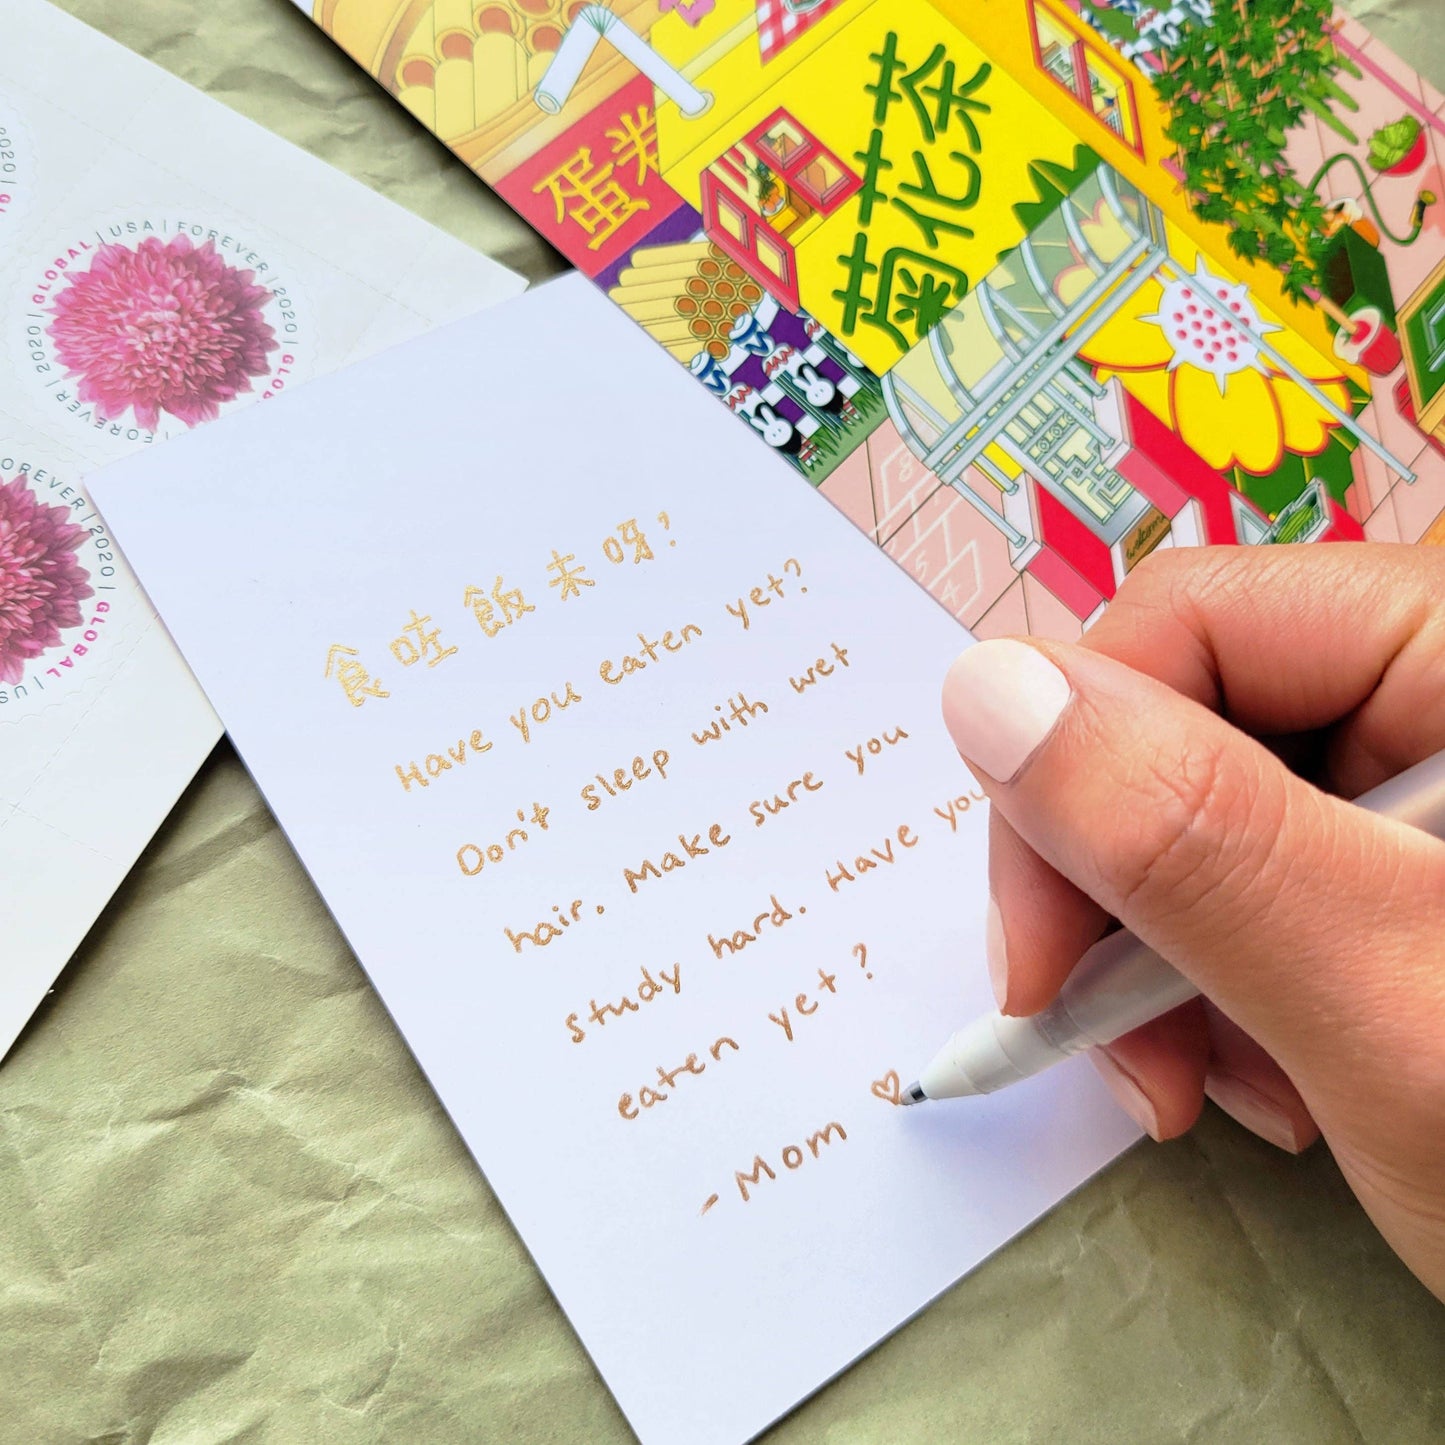 GLOBAL | USA | FOREVER | 2020 |
FOREVER | 2020 |
FOREVER | 2020 | GLOBAL | USA
蛋卷
菊花茶
welcome
8
5
4
食咗飯未呀?
Have you eaten yet?
Don't sleep with wet
hair. Make sure you
study hard. Have you
eaten yet?
- Mom ♡